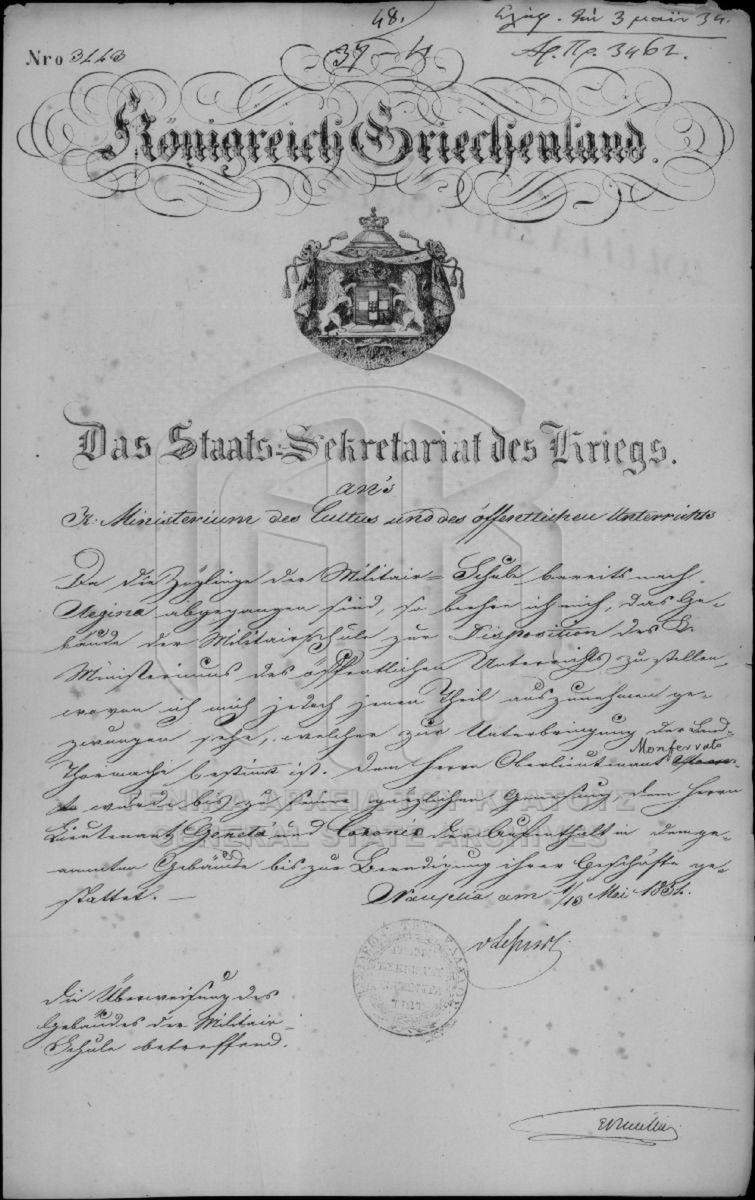 48.
Ἐλήφ. τὴν 3 μαΐου 34.
Nro 3443
37-4
Αρ. Πρ. 3462.
Königreich Griechenland.
Das Staats-Sekretariat des Kriegs.
an's
K: Ministerium des Cultus und des öffentlichen Unterrichts
Da die Zöglinge der Militair-Schule bereits nach
Aegina abgegangen sind, so beehre ich mich, das Ge-
bäude der Militairschule zur Disposition des K.
Ministeriums des öffentlichen Unterrichts zu stellen,
wovon ich mich jedoch jenen Theil auszunehmen ge-
zwungen sehe, welcher zur Unterbringung der Land-
Thorwache bestimt ist. Dem Herrn Oberlieutenant Monferrato
wurde bis zu seiner gänzlichen Genesung, dem Herrn
Lieutenant und Coronis der Aufenthalt in demge-
nannten Gebäude bis zur Beendigung ihrer Geschäfte ge-
stattet. —
Nauplia am 1/13 Mai 1834.
ΓΕΝΙΚΑ ΑΡΧΕΙΑ ΤΟΥ ΚΡΑΤΟΥΣ
GENERAL STATE ARCHIVES
Die Überweisung des
Gebäudes der Militair-
Schule betreffend.